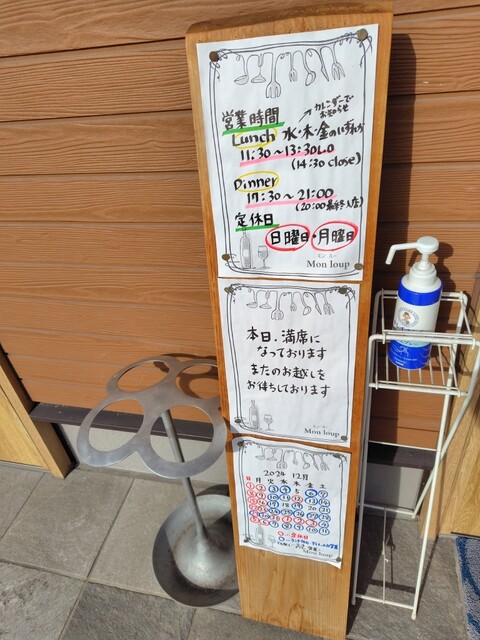 営業時間
カレンダーで
お知らせ
Lunch 水・木・金のいずれか
11:30〜13:30LO
(14:30 close)
Dinner
17:30〜21:00
(20:00最終入店)
定休日
日曜日・月曜日
モン ルー
Mon loup
本日、満席に
なっております
またのお越しを
お待ちしております
モン ルー
Mon loup
2024 12月
日 月 火 水 木 金 土
定休日
Mon loup